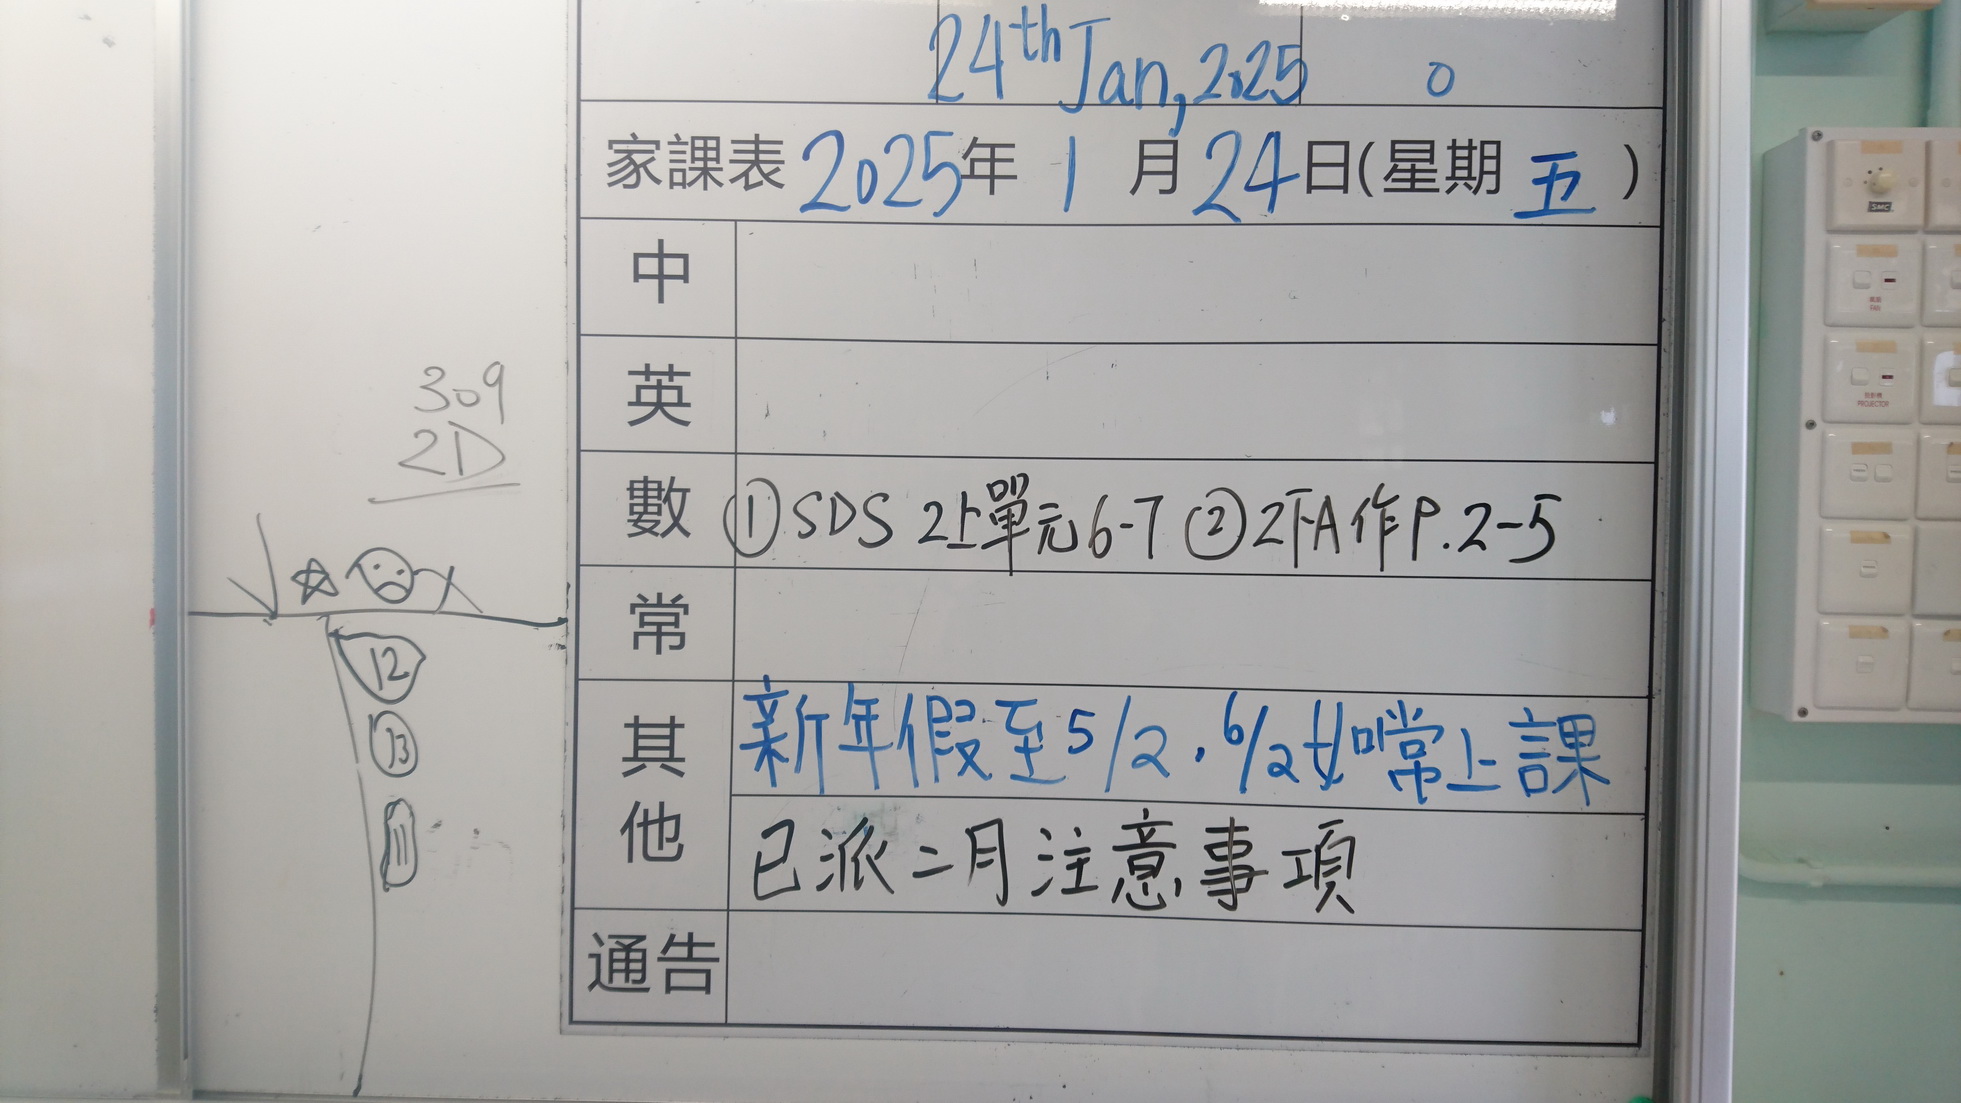 24th Jan, 2025 0
家課表 2025年 1 月 24日(星期 五 )
中
英
數 ①SDS 2上單元6-7 ②2下A作P.2-5
常
其他
新年假至5/2，6/2如常上課
已派二月注意事項
通告
309
2D
12
13
11
SMC
風扇
FAN
投影機
PROJECTOR